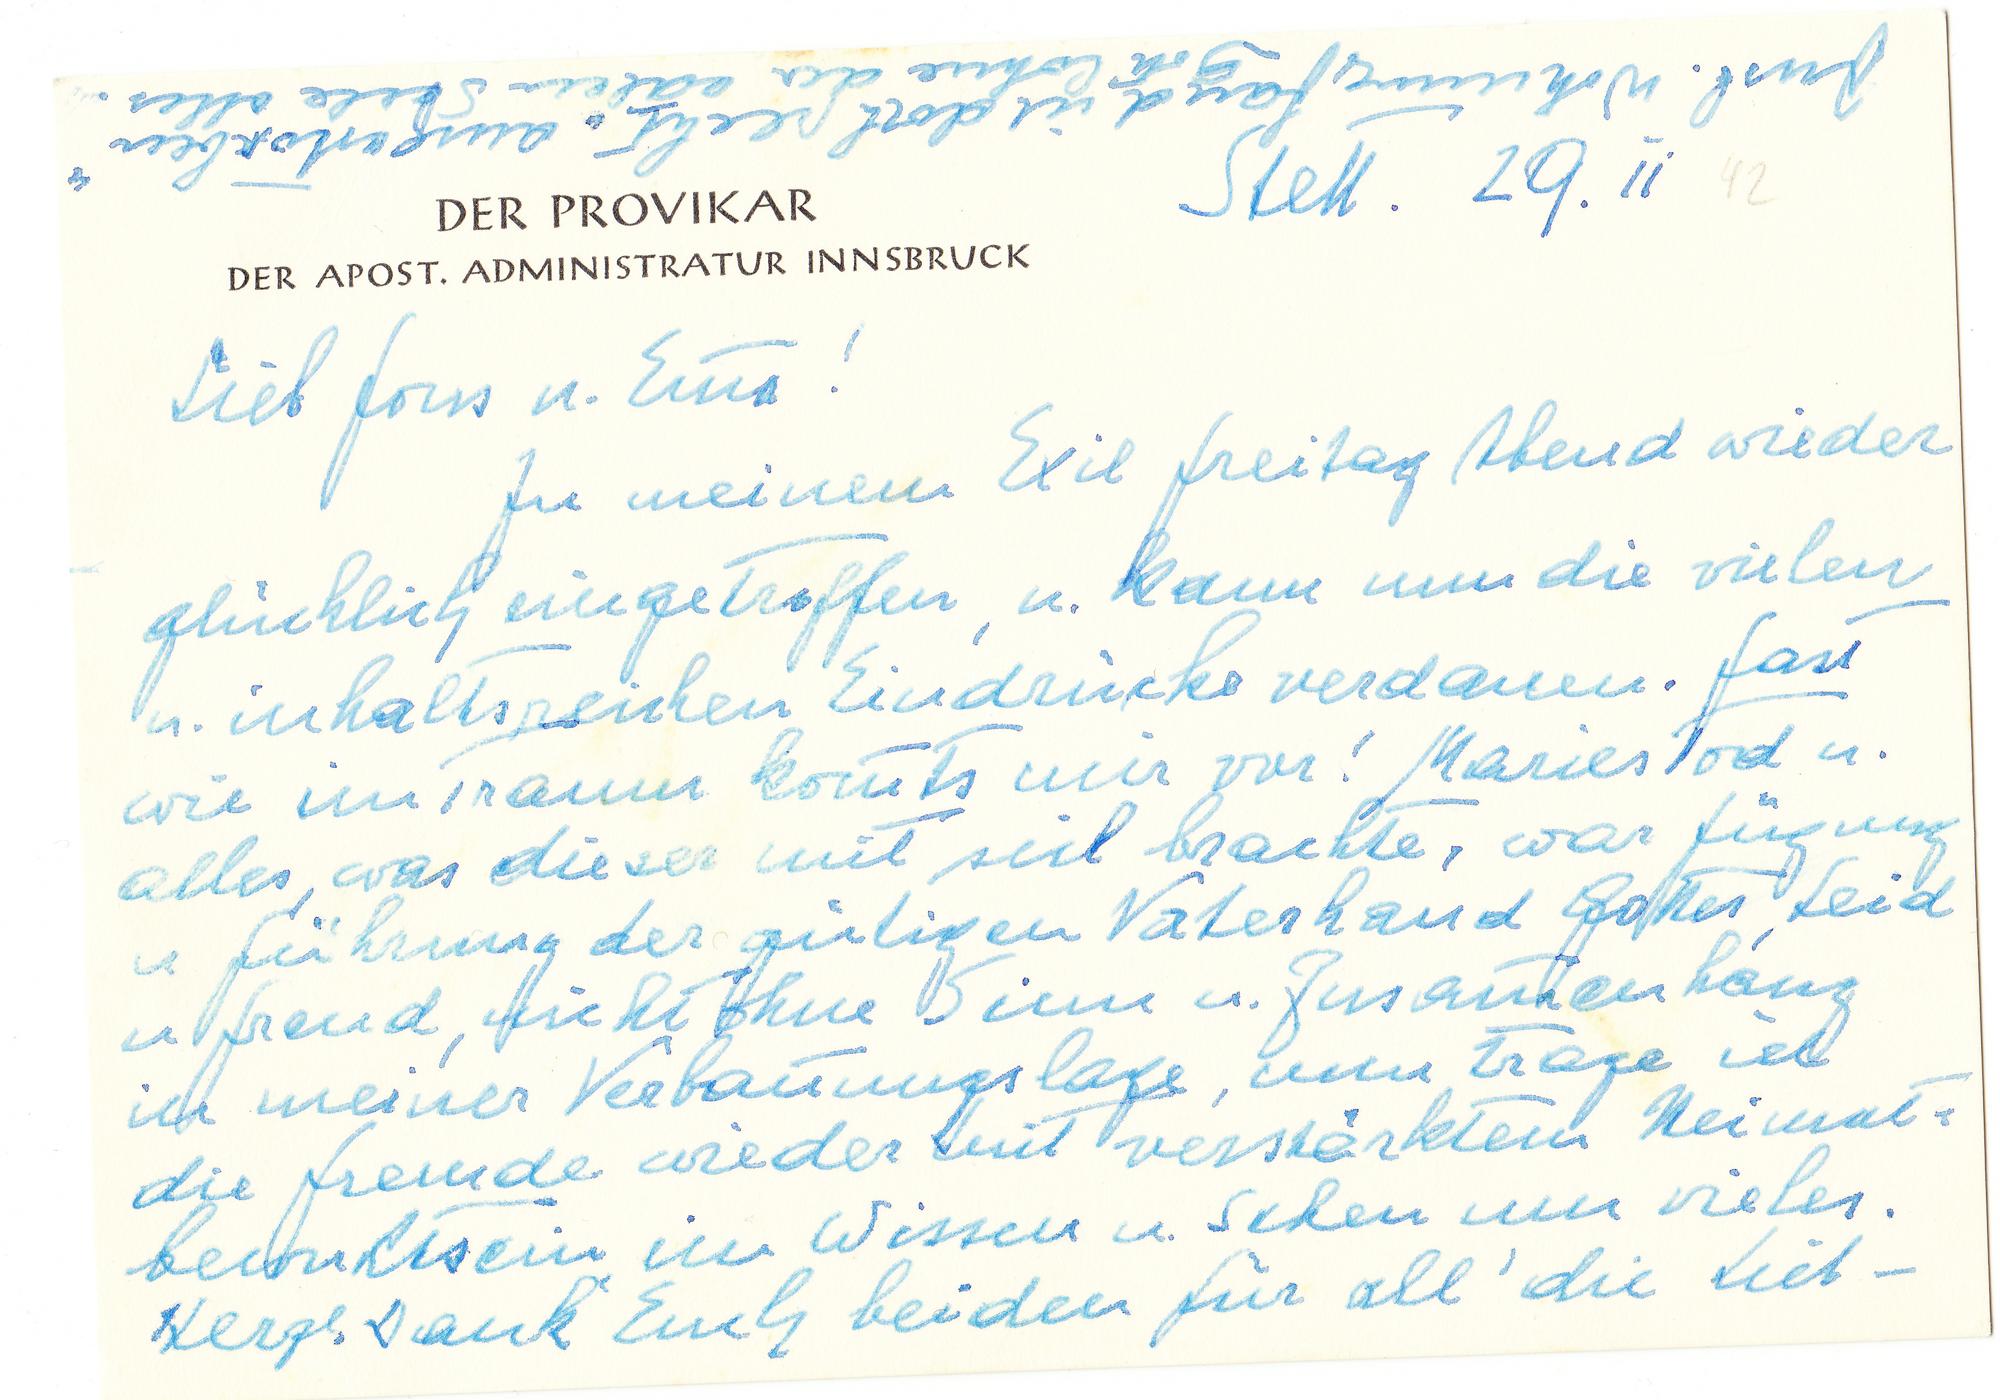 Innsb. Wohnung fand ich dort recht. ausgestorben
Gott lohne der edlen Seele alles.
Stett. 29. II 42
DER PROVIKAR
DER APOST. ADMINISTRATUR INNSBRUCK
Lieb u. Em̅a!
In meinem Exil Freitag Abend wieder
glücklich eingetroffen, u. kann nun die vielen
u. inhaltsreichen Eindrücke verdauen. Fast
wie im Traum kom̅ts mir vor! Maries Tod u.
alles, was dieser mit sich brachte, war Fügung
u Führung der gütigen Vaterhand Gottes, Leid
u Freud, nicht ohne Sinn u. Zusam̅enhang
in meiner Verban̅ungslage, nun trage ich
die Fremde wieder mit verstärktem Heimat-
bewußtsein im Wissen u. Sehen um vieles.
Herzl. Dank Euch beiden für all' die Lieb-